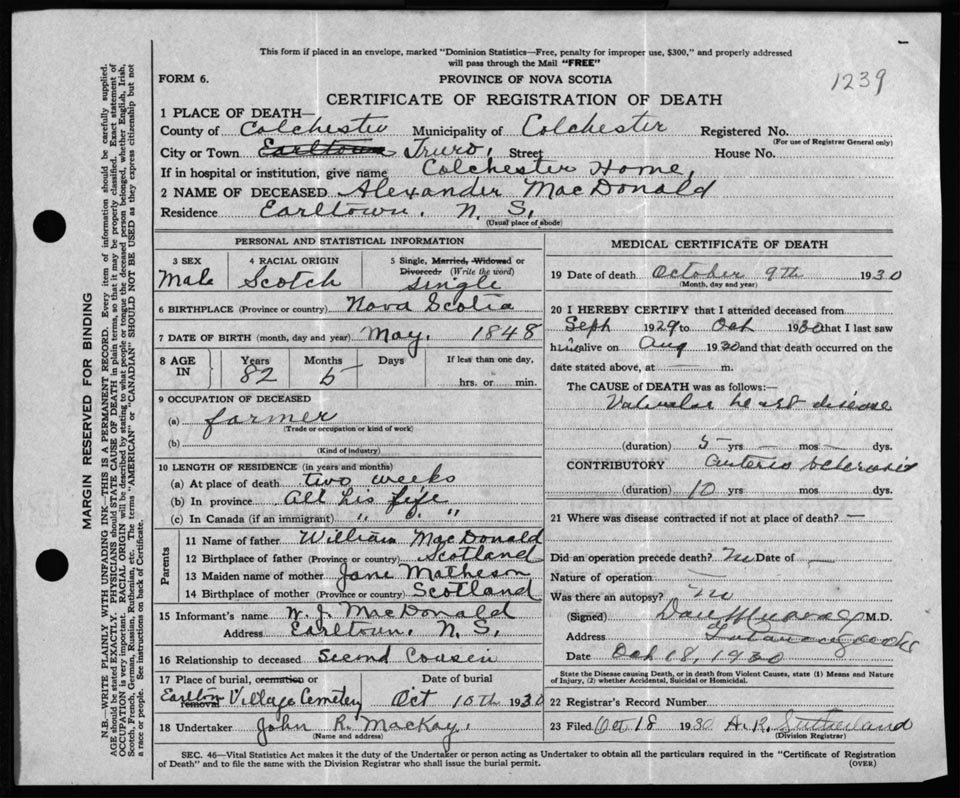 This form if placed in an envelope, marked "Dominion Statistics—Free, penalty for improper use, $300," and properly addressed
will pass through the Mail "FREE"
FORM 6.
PROVINCE OF NOVA SCOTIA
1239
CERTIFICATE OF REGISTRATION OF DEATH
1 PLACE OF DEATH—
County of Colchester Municipality of Colchester Registered No.
(For use of Registrar General only)
City or Town Earltown Truro, Street House No.
If in hospital or institution, give name Colchester Home,
2 NAME OF DECEASED Alexander MacDonald
Residence Earltown. N. S.
(Usual place of abode)
PERSONAL AND STATISTICAL INFORMATION
3 SEX 4 RACIAL ORIGIN 5 Single, Married, Widowed or Divorced: (Write the word)
Male Scotch single
6 BIRTHPLACE (Province or country) Nova Scotia
7 DATE OF BIRTH (month, day and year) May. 1848
8 AGE IN Years Months Days If less than one day,
82 5 hrs. or min.
9 OCCUPATION OF DECEASED
(a) farmer
(Trade or occupation or kind of work)
(b)
(Kind of industry)
10 LENGTH OF RESIDENCE (in years and months)
(a) At place of death two weeks
(b) In province All his life
(c) In Canada (if an immigrant) " " "
Parents
11 Name of father William MacDonald
12 Birthplace of father (Province or country) Scotland
13 Maiden name of mother Jane Matheson
14 Birthplace of mother (Province or country) Scotland
15 Informant's name W. J. MacDonald
Address Earltown, N. S.
16 Relationship to deceased Second Cousin
17 Place of burial, cremation or removal Date of burial
Earltn Village Cemetery Oct 10th 1930
18 Undertaker John R. MacKay,
(Name and address)
MEDICAL CERTIFICATE OF DEATH
19 Date of death October 9th 1930
(Month, day and year)
20 I HEREBY CERTIFY that I attended deceased from
Sept 1929 to Oct 1930 that I last saw
him alive on Aug 1930 and that death occurred on
date stated above, at — m.
The CAUSE of DEATH was as follows:—
Valvular heart disease
(duration) 5 yrs — mos — dys.
CONTRIBUTORY Arterio Sclerosis
(duration) 10 yrs — mos — dys.
21 Where was disease contracted if not at place of death? —
Did an operation precede death? No Date of —
Nature of operation —
Was there an autopsy? No
(Signed) Dan Murray M.D.
Address Tatamagouche
Date Oct 18, 1930
State the Disease causing Death, or in Death from Violent Causes, state (1) Means and Nature of Injury, (2) whether Accidental, Suicidal or Homicidal.
22 Registrar's Record Number
23 Filed Oct 18 1930 A. R. Sutherland
(Division Registrar)
SEC. 46—Vital Statistics Act makes it the duty of the Undertaker or person acting as Undertaker to obtain all the particulars required in the "Certificate of Registration
of Death" and to file the same with the Division Registrar who shall issue the burial permit. (OVER)
MARGIN RESERVED FOR BINDING
N.B.—WRITE PLAINLY WITH UNFADING INK—THIS IS A PERMANENT RECORD. Every item of information should be carefully supplied.
AGE should be stated EXACTLY. PHYSICIANS should STATE CAUSE OF DEATH in plain terms, so that it may be properly classified. Exact statement of
OCCUPATION is very important. RACIAL ORIGIN will be described by stating to what people or tongue the deceased person belonged, whether English, Irish,
Scotch, French, German, Russian, Ruthenian, etc. The terms "AMERICAN" or "CANADIAN" SHOULD NOT BE USED as they express citizenship but not
a race or people. See instructions on back of Certificate.